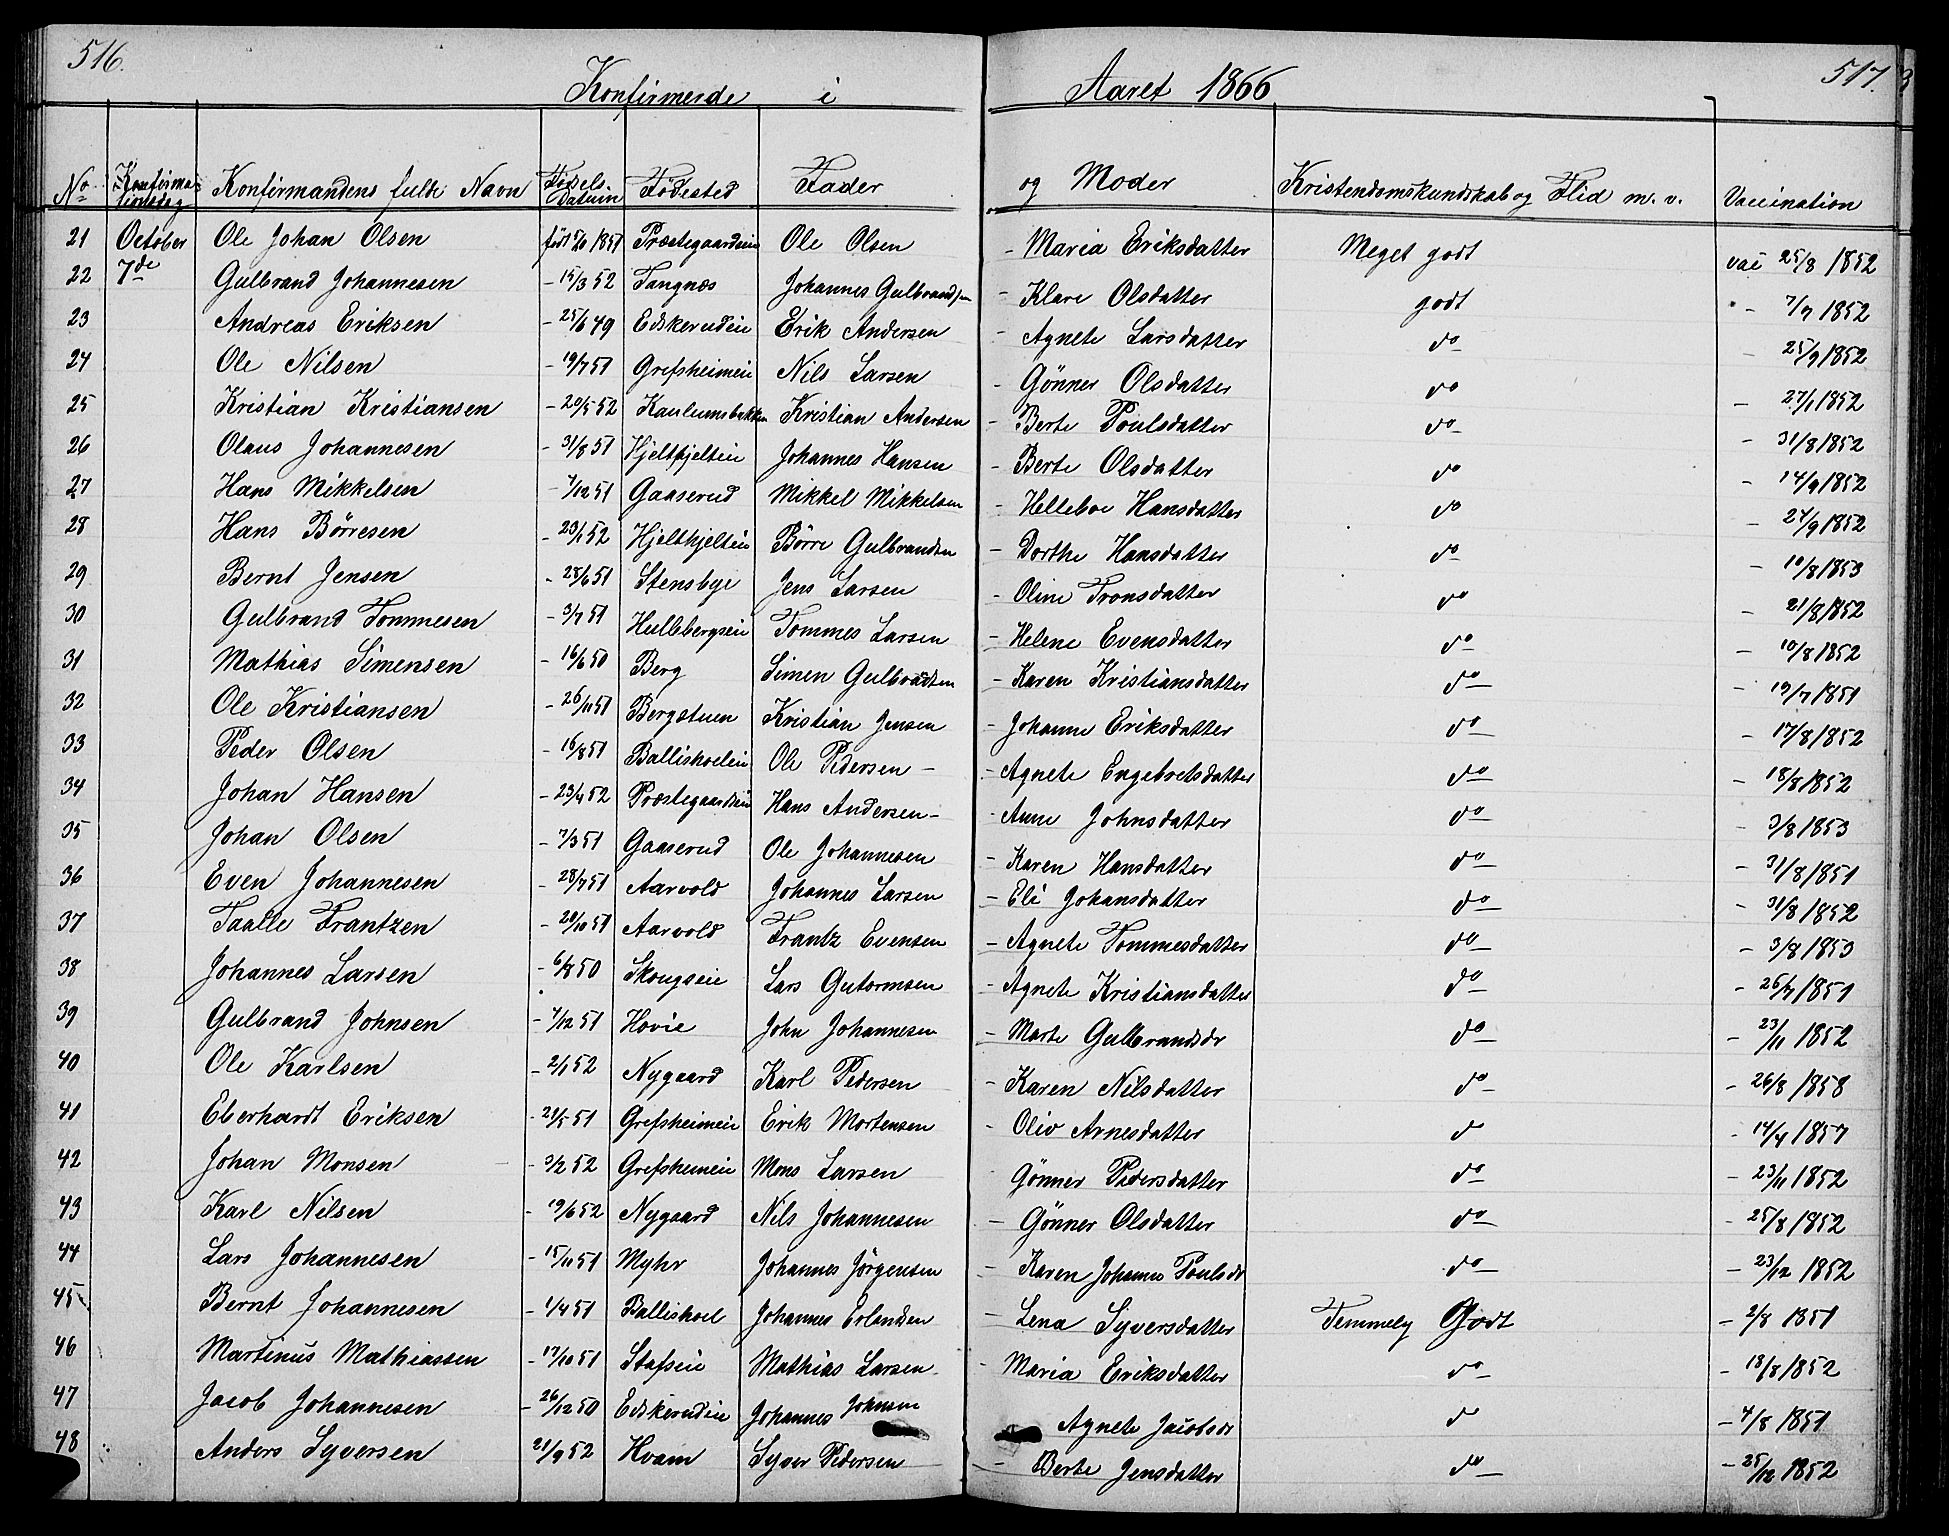 516.
Konfirmerde i Aaret 1866
517.
No Konfirmationsdag Konfirmandens fulde Navn Fødsels Datum Fødested Fader og Moder Kristendomskundskab og Flid m. v. Vaccination
21 October Ole Johan Olsen født 5/10 1851 Præstegaardseie Ole Olsen - Maria Eriksdatter Meget godt vac 25/8 1852
22 7de Gulbrand Johannesen - 15/3 52 Tangnæs Johannes Gulbrandsen - Klare Olsdatter godt - 7/7 1852
23 Andreas Eriksen - 25/6 49 Edskerudeie Erik Andersen - Agnete Larsdatter do - 25/9 1852
24 Ole Nilsen - 19/7 51 Grefsheimeie Nils Larsen - Gønner Olsdatter do - 27/1 1852
25 Kristian Kristiansen - 20/5 52 Kaulumsbakken Kristian Andersen - Berte Poulsdatter do - 31/8 1852
26 Olaus Johannesen - 31/8 51 Hjeltkjelteie Johannes Hansen - Berte Olsdatter do - 14/9 1852
27 Hans Mikkelsen - 7/12 51 Gaaserud Mikkel Mikkelsen - Helleboe Hansdatter do - 24/9 1852
28 Hans Børresen - 23/1 52 Hjeltkjelteie Børre Gulbrandsen - Dorthe Hansdatter do - 10/8 1853
29 Bernt Jensen - 28/6 51 Stensbye Jens Larsen - Oline Tronsdatter do - 21/8 1852
30 Gulbrand Tommesen - 3/7 51 Hullebergseie Tommes Larsen - Helene Evensdatter do - 10/8 1852
31 Mathias Simensen - 16/6 50 Berg Simen Gulbrandsen - Karen Kristiansdatter do - 19/7 1851
32 Ole Kristiansen - 26/11 51 Bergstuen Kristian Jensen - Johanne Eriksdatter do - 17/8 1852
33 Peder Olsen - 16/8 51 Ballishoeleie Ole Pedersen - - Agnete Engebretsdatter do - 18/8 1852
34 Johan Hansen - 23/4 52 Præstegaardseie Hans Andersen - - Anne Johnsdatter do - 3/8 1853
35 Johan Olsen - 7/3 51 Gaaserud Ole Johannesen - Karen Hansdatter do - 31/8 1851
36 Even Johannesen - 28/7 51 Aarvold Johannes Larsen - Eli Johansdatter do - 31/8 1852
37 Taalle Frantzen - 20/10 51 Aarvold Frantz Evensen - Agnete Tommesdatter do - 3/8 1853
38 Johannes Larsen - 6/8 50 Skougseie Lars Gutormsen - Agnete Kristiansdatter do - 26/7 1851
39 Gulbrand Johnsen - 7/12 51 Hovie John Johannesen - Marte Gulbrandsdr do - 23/11 1852
40 Ole Karlsen - 2/1 52 Nygaard Karl Pedersen - Karen Nilsdatter do - 26/8 1858
41 Eberhardt Eriksen - 21/5 51 Grefsheimeie Erik Mortensen - Oliv Arnesdatter do - 14/4 1857
42 Johan Monsen - 3/2 52 Grefsheimeie Mons Larsen Gønner Pedersdatter do - 23/11 1852
43 Karl Nilsen - 19/6 52 Nygaard Nils Johannesen - Gønner Olsdatter do - 25/8 1852
44 Lars Johannesen - 15/11 51 Myhr Johannes Jørgensen - Karen Johanne Poulsdr do - 23/12 1852
45 Bernt Johannesen - 1/4 51 Ballishoel Johannes Erlandsen - Lena Syversdatter Temmelig Godt - 2/8 1851
46 Martinus Mathiassen - 17/10 51 Stafseie Mathias Larsen - Maria Eriksdatter do - 18/8 1852
47 Jacob Johannesen - 26/12 50 Edskerudeie Johannes Johnsen Agnete Jacobsdr do - 4/8 1851
48 Anders Syversen 21/9 52 Hvam Syver Pedersen - Berte Jensdatter do - 25/12 1852